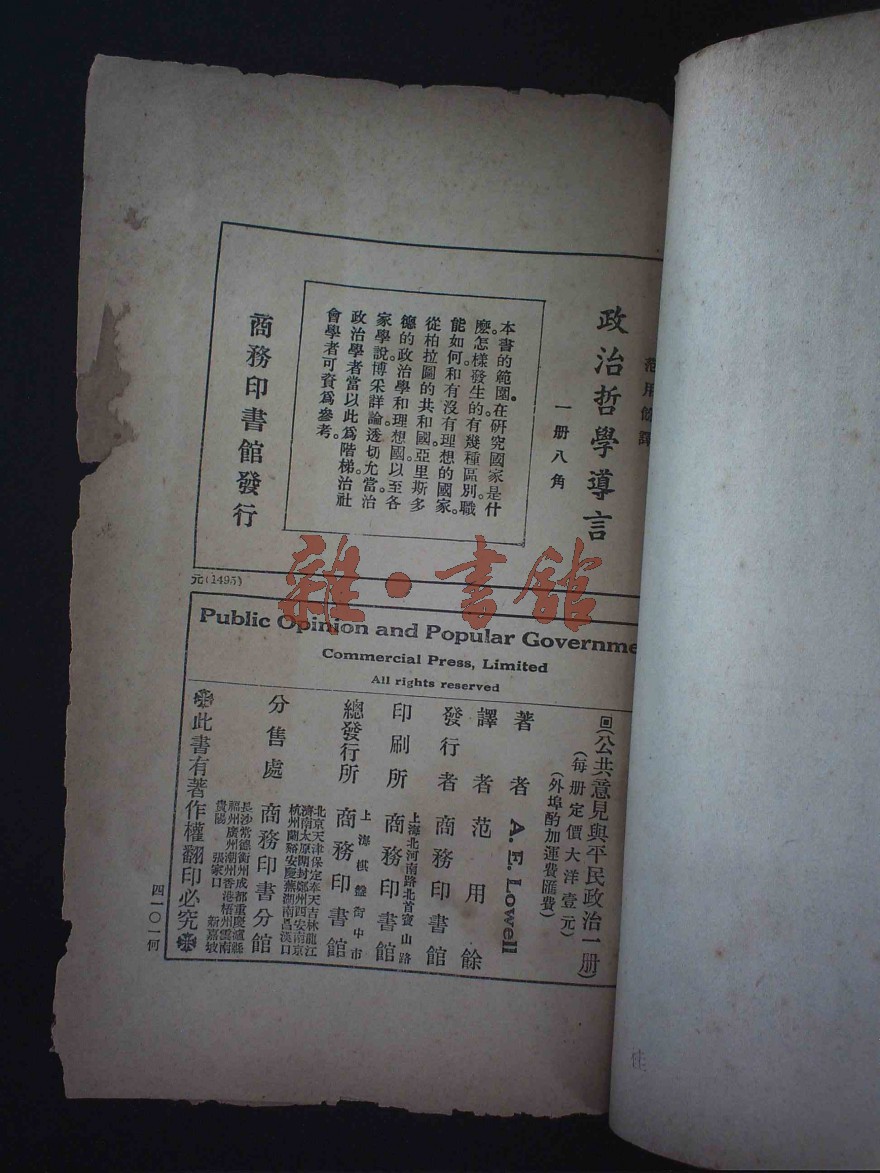 范用餘譯
政治哲學導言
一册八角
本書的範圍。在研究國家是什
麽。怎樣發生的。有幾種區別。職
能如何。和有沒有理想的國家。
從柏拉圖的共和國。亞里斯多
德的政治學和理想國。以至各
家學說。博采詳論。透切允當。治
政治學者當以此爲階梯。治社
會學者可資爲參考。
商務印書館發行
元(1495)
雜·書館
Public Opinion and Popular Governme
Commercial Press, Limited
All rights reserved
(公共意見與平民政治一册)
(每册定價大洋壹元)
(外埠酌加運費匯費)
著者 A. E. Lowell
譯者 范用餘
發行者 商務印書館
印刷所 上海北河南路北首寶山路 商務印書館
總發行所 上海棋盤街中市 商務印書館
分售處 商務印書分館
北京天津保定奉天吉林龍江
濟南太原開封鄭州西安南京
杭州蘭谿安慶蕪湖南昌漢口
長沙常德衡州成都重慶瀘縣
福州廣州潮州香港梧州雲南
貴陽 張家口 新嘉坡
此書有著作權翻印必究
四一〇一何